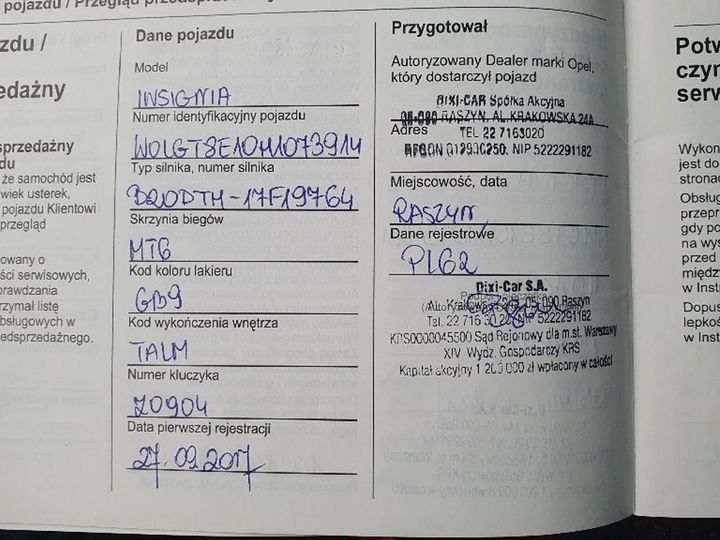 pojazdu / Przegląd
zdu /
edażny
sprzedażny
du
że samochód jest
wiek usterek,
pojazdu Klientowi
przegląd
owano o
ści serwisowych,
prawdzania
rzymał listę
bsługowych w
edsprzedażnego.
Dane pojazdu
Model
INSIGNIA
Numer identyfikacyjny pojazdu
W0LGT8E10H1073914
Typ silnika, numer silnika
B20DTH-17F19764
Skrzynia biegów
MT6
Kod koloru lakieru
GB9
Kod wykończenia wnętrza
TALM
Numer kluczyka
Z0904
Data pierwszej rejestracji
27.09.2017
Przygotował
Autoryzowany Dealer marki Opel,
który dostarczył pojazd
DIXI-CAR Spółka Akcyjna
05-090 RASZYN, AL. KRAKOWSKA 24A
Adres
TEL 22 7163020
REGON NIP 5222291182
Miejscowość, data
RASZYN,
Dane rejestrowe
Dixi-Car S.A.
05-090 Raszyn
Tel. 22 716 30 20 NIP 5222291182
KRS0000045500 Sąd Rejonowy dla m.st. Warszawy
XIV Wydz. Gospodarczy KRS
Kapitał akcyjny 1 200 000 zł wpłacony w całości
Potw
czyn
serw
Wykon
jest do
stronac
Obsług
przepr
gdy po
na wys
przed
między
w Inst
Dopus
lepkoś
w Inst